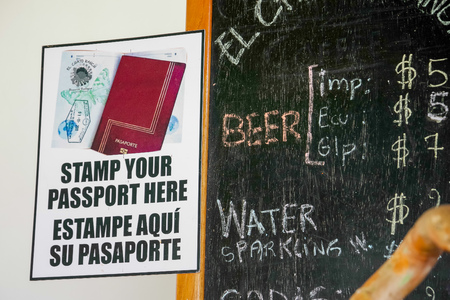 PASAPORTE
STAMP YOUR
PASSPORT HERE
ESTAMPE AQUÍ
SU PASAPORTE
EL
BEER
Imp: $ 5
Ecu $ 5
Glp: $ 7
WATER $ 2
SPARKLING W. $